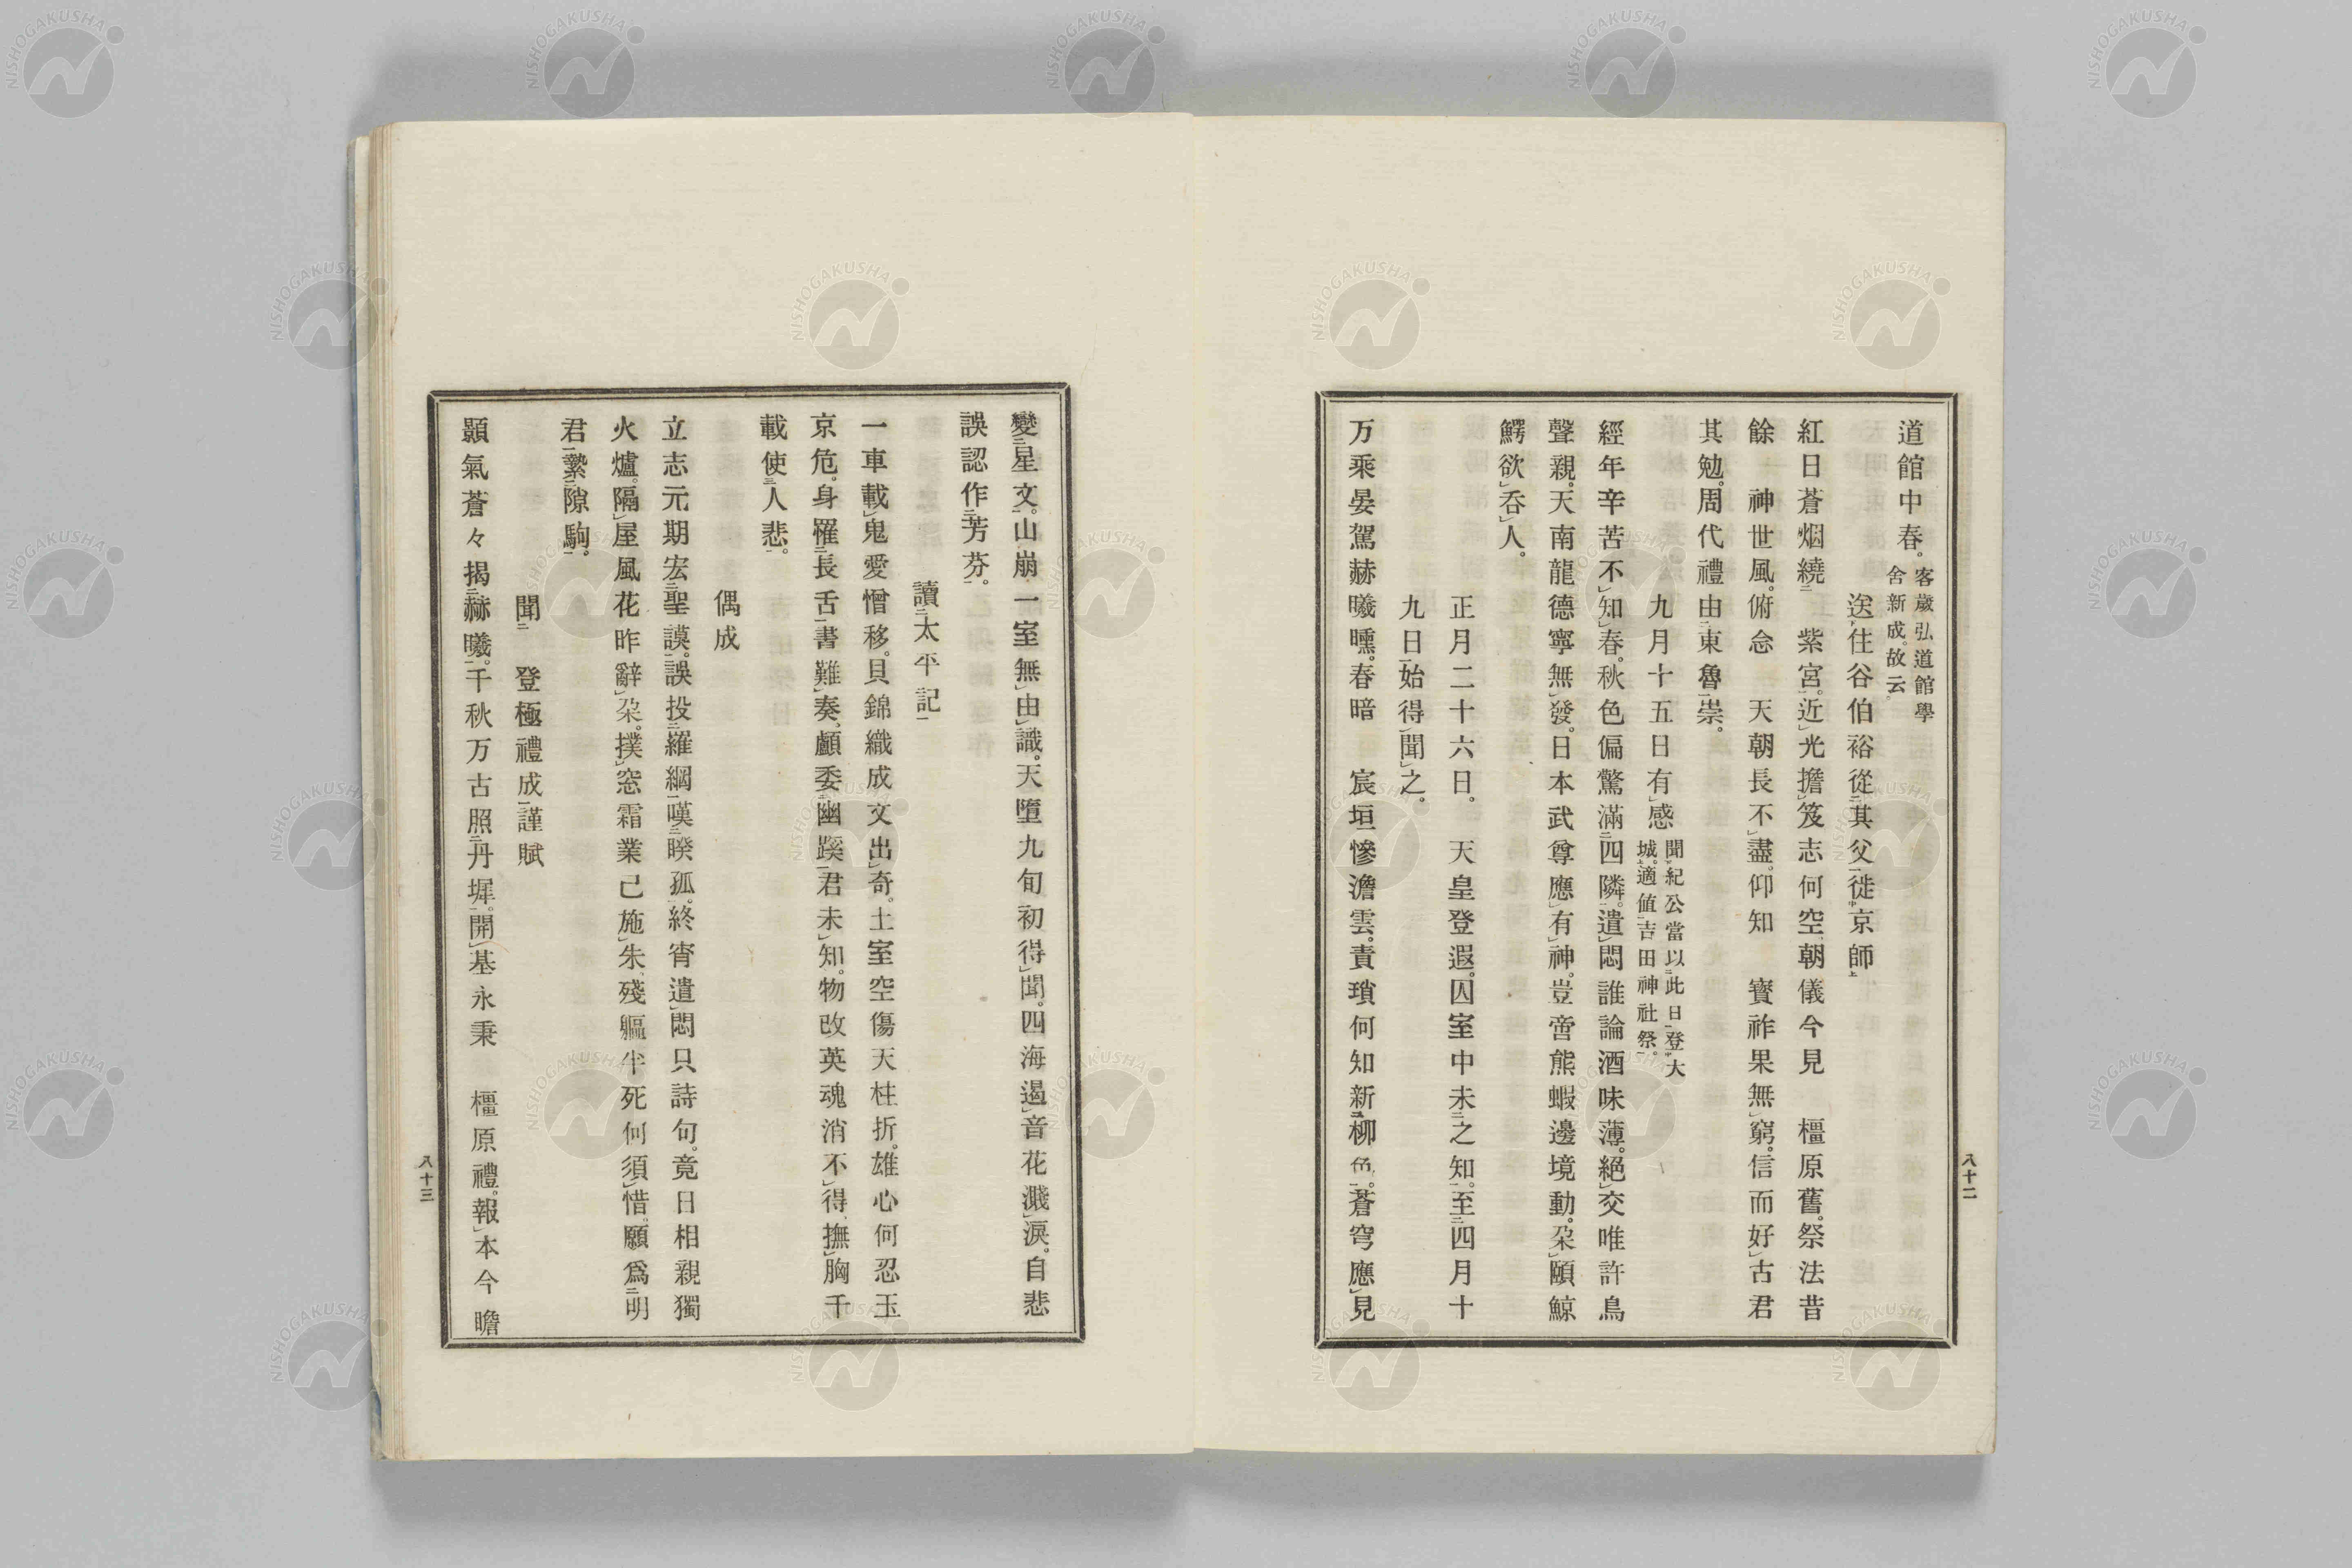 道館中春。客歲弘道館學
舍新成。故云。
送住谷伯裕從其父徙京師
紅日蒼烟繞 紫宮。近光擔笈志何空。朝儀今見 橿原舊。祭法昔
餘 神世風。俯念 天朝長不盡。仰知 寶祚果無窮。信而好古君
其勉。周代禮由東魯崇。
九月十五日有感 聞紀公當以此日登大
城。適値吉田神社祭。
經年辛苦不知春。秋色偏驚滿四隣。遣悶誰論酒味薄。絕交唯許鳥
聲親。天南龍德寧無發。日本武尊應有神。豈啻熊蝦邊境動。朶頤鯨
鰐欲呑人。
正月二十六日。 天皇登遐。囚室中未之知。至四月十
九日始得聞之。
万乘晏駕赫曦曛。春暗 宸垣慘澹雲。責瑣何知新柳色。蒼穹應見
八十二
變星文。山崩一室無由識。天墮九旬初得聞。四海遏音花濺淚。自悲
誤認作芳芬。
讀太平記
一車載鬼愛憎移。貝錦織成文出奇。土室空傷天柱折。雄心何忍玉
京危。身羅長舌書難奏。顱委幽蹊君未知。物改英魂消不得。撫胸千
載使人悲。
偶成
立志元期宏聖謨。誤投羅綱嘆睽孤。終宵遣悶只詩句。竟日相親獨
火爐。隔屋風花昨辭朶。撲窓霜葉已施朱。殘軀半死何須惜。願爲明
君縶隙駒。
聞 登極禮成謹賦
顥氣蒼々揭赫曦。千秋万古照丹墀。開基永秉 橿原禮。報本今瞻
八十三